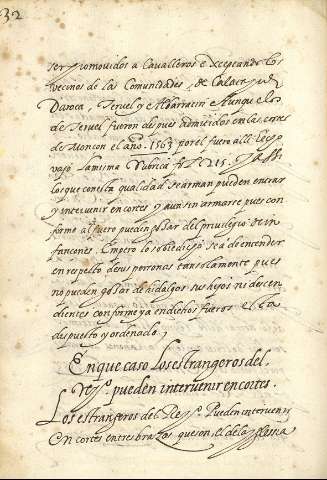 32
ser promovidos a Cavalleros exceptando los
vecinos de las Comunidades, de Calatayud
Daroca, Teruel y Albarracin Aunque los
de Teruel fueron despues admitidos en las cortes
de Monçon el año. 1563 por el fuero alli
vajo la misma Rubrica
los que con esta qualidad se arman pueden entrar
y intervenir en cortes y aun sin armarse pues con
forme a fuero pueden goçar del privilegio de in
fançones. Empero lo sobredicho se a de entender
en respecto de sus personas tansolamente pues
no pueden goçar de hidalgos sus hijos ni descen
dientes conforme ya en dichos fueros esta
dispuesto y ordenado,
En que caso Los estrangeros del
Reyº. pueden intervenir en cortes.
Los estrangeros del Reyº. Pueden intervenir
En cortes en tres braços que son, El de la Iglesia